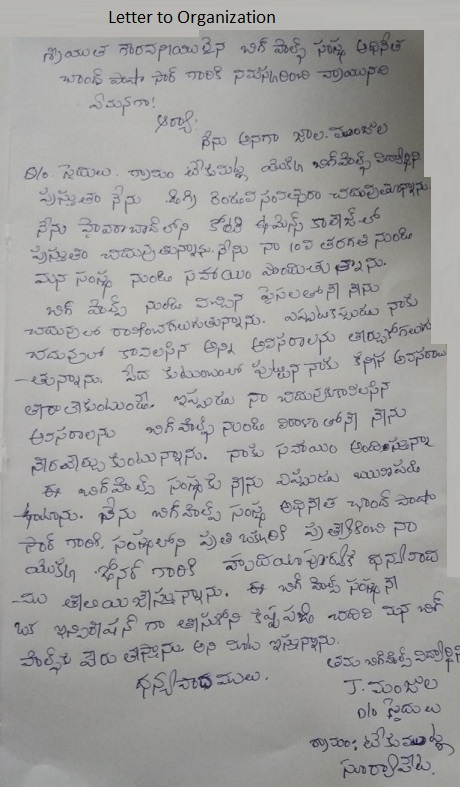 Letter to Organization
శ్రీయుత గౌరవనీయులైన బిగ్ హెల్ప్ సంస్థ అధినేత
చాంద్ పాషా సార్ గారికి నమస్కరించి వ్రాయునది
ఏమనగా!
ఆర్యా!
నేను అనగా జాల. మంజుల
D/o. సైదులు. గ్రామం టేకుమట్ల యొక్క బిగ్‌హెల్ప్ విద్యార్థిని
ప్రస్తుతం నేను డిగ్రీ రెండవ సంవత్సరం చదువుతున్నాను.
నేను హైదరాబాద్ లోని కోఠి ఉమెన్స్ కాలేజ్ లో
ప్రస్తుతం చదువుతున్నాను. నేను నా 10వ తరగతి నుండి
మన సంస్థ నుండి సహాయం పొందుతున్నాను.
బిగ్ హెల్ప్ నుండి వచ్చిన పైసలతోనే నేను
చదువులో రాణించగలుగుతున్నాను. ఎప్పటికప్పుడు నాకు
చదువులో కావలసిన అన్ని అవసరాలను తీర్చుకోగలుగు
-తున్నాను. పేద కుటుంబంలో పుట్టిన నాకు కనీస అవసరాలు
తీరాలేకుంటుండే. ఇప్పుడు నా చదువుకు కావలసిన
అవసరాలను బిగ్‌హెల్ప్ నుండి విరాళాలతోనే నేను
నెరవేర్చుకుంటున్నాను. నాకు సహాయం అందిస్తున్నా
ఈ బిగ్‌హెల్ప్ సంస్థకు నేను ఎప్పుడు ఋణపడి
ఉంటాను. నేను బిగ్‌హెల్ప్ సంస్థ అధినేత చాంద్ పాషా
సార్ గారికి, సంస్థలోని ప్రతి ఒక్కరికి ప్రత్యేకించి నా
యొక్క డోనర్ గారికి హృదయపూర్వక ధన్యవాద
-ము తెలియజేస్తున్నాను. ఈ బిగ్ హెల్ప్ సంస్థ నే
ఒక ఇన్స్పిరేషన్ గా తీసుకొని కష్టపడి చదివి మన బిగ్
హెల్ప్‌కు పేరు తెస్తాను అని మాట ఇస్తున్నాను.
ధన్యవాదములు.
తమ బిగ్‌హెల్ప్ విద్యార్థిని
J. మంజుల
D/o సైదులు
గ్రామం: టేకుమట్ల
సూర్యాపేట.